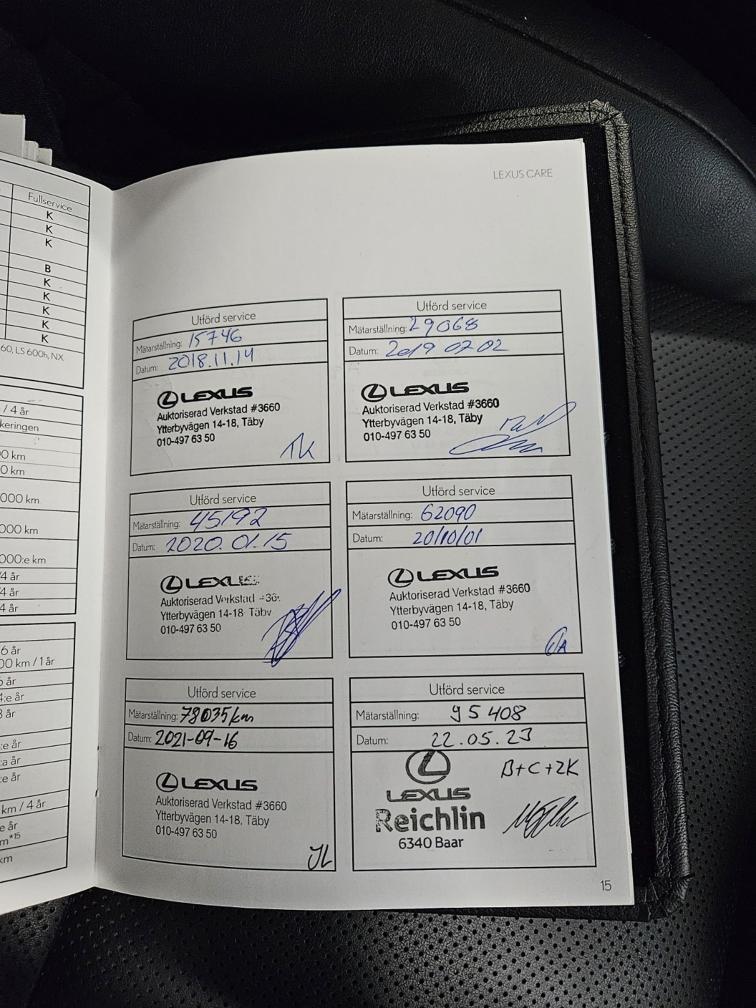 Fullservice
K
K
K
B
K
K
K
K
K
60, LS 600h, NX
/ 4 år
keringen
00 km
0 km
000 km
000 km
000:e km
/4 år
4 år
4 år
6 år
00 km / 1 år
å år
4:e år
3 år
:e år
:a år
:e år
km / 4 år
:e år
m*15
km
LEXUS CARE
Utförd service
Mätarställning: 15746
Datum: 2018.11.14
LEXUS
Auktoriserad Verkstad #3660
Ytterbyvägen 14-18, Täby
010-497 63 50
TK
Utförd service
Mätarställning: 29068
Datum: 2019 07 02
LEXUS
Auktoriserad Verkstad #3660
Ytterbyvägen 14-18, Täby
010-497 63 50
Utförd service
Mätarställning: 45192
Datum: 2020.01.15
LEXUS
Auktoriserad Verkstad
Ytterbyvägen 14-18 Täby
010-497 63 50
Utförd service
Mätarställning: 62090
Datum: 20/10/01
LEXUS
Auktoriserad Verkstad #3660
Ytterbyvägen 14-18, Täby
010-497 63 50
Utförd service
Mätarställning: 78035 km
Datum: 2021-09-16
LEXUS
Auktoriserad Verkstad #3660
Ytterbyvägen 14-18, Täby
010-497 63 50
JL
Utförd service
Mätarställning: 95408
Datum: 22.05.23
B+C+2K
LEXUS
Reichlin
6340 Baar
15